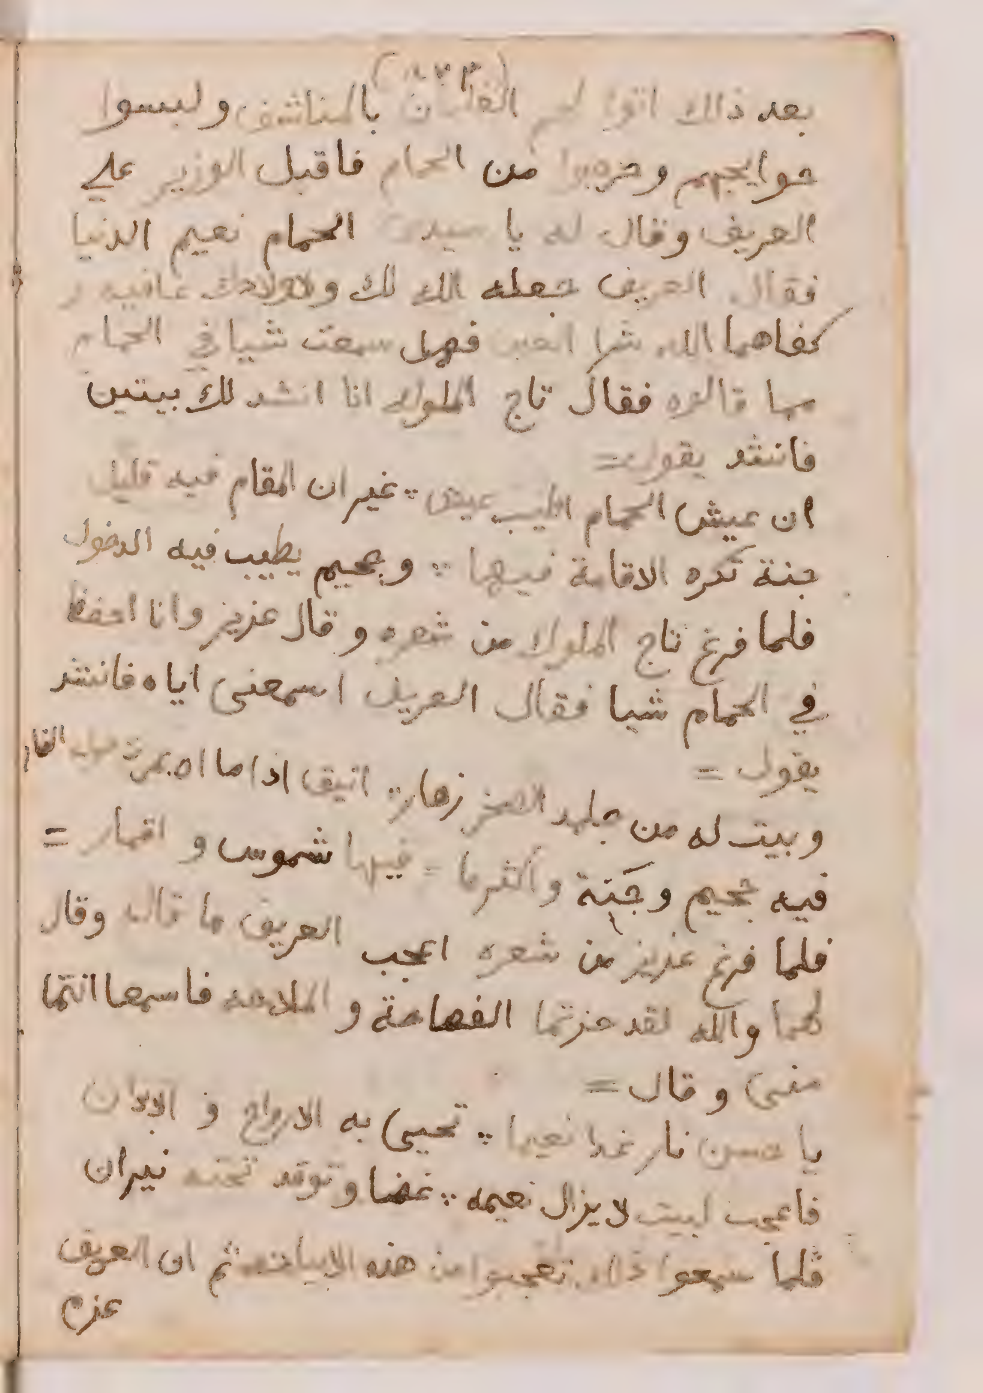 (١٧٣)
بعد ذالك اتوا لهم الغلمان بالمناشف ولبسوا
حوايجهم وخرجوا من الحمام فاقبل الوزير علي
العريف وقال له يا سيدي الحمام نعيم الدنيا
فقال العريف جعله الله لك ولاولادك عافيه و
كفاهما الله شرا العين فهل سمعت شيا في الحمام
مما قالوه فقال تاج الملوك انا انشد لك بيتين
فانشد يقول =
ان عيش الحمام اطيب عيش ∴ غير ان المقام فيه قليل
جنة تكره الاقامة فيها ∴ وجحيم يطيب فيه الدخول
فلما فرغ تاج الملوك من شعره وقال عزيز وانا احفظ
في الحمام شيا فقال العريف اسمعنى اياه فانشد
يقول =
وبيت له من جلمد الصخر زهار ∴ انيق اذا ما
فيه جحيم وجنة وأكثر ما - فيها شموس و اقمار =
فلما فرغ عزيز من شعره اعجب العريف ما قاله وقال
لهما والله لقد حزتما الفصاحة و الملاحه فاسمعا انتما
منى و قال =
يا حسن نار غدا نعيما ∴ تحيى به الارواح و الابدان
فاعجب لبيت لا يزال نعيمه ∴ غضا وتوقد تحته نيران
فلما سمعوا ذلك تعجبوا من هذه الابيات ثم ان العريف
عزم